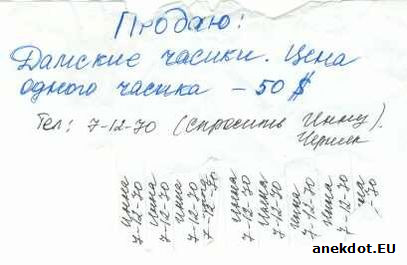 Продаю:
Дамские часики. Цена
одного часика - 50 $
Тел: 7-12-70 (спросить Инну).
Инна 7-12-70
Инна 7-12-70
Инна 7-12-70
Инна 7-12-70
Инна 7-12-70
Инна 7-12-70
Инна 7-12-70
Инна 7-12-70
на -70
anekdot.EU